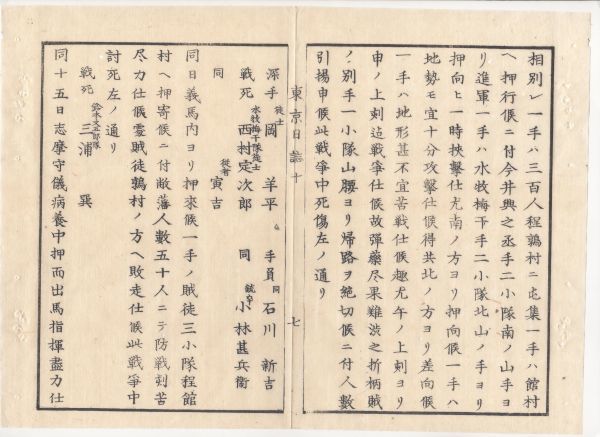 相別レ一手ハ三百人程鶉村ニ屯集一手ハ館村
ヘ押行候ニ付今井興之丞手二小隊南ノ山手ヨ
リ進軍一手ハ水牧梅干手二小隊北山ノ手ヨリ
押向ヒ一時挾擊仕尤南ノ方ヨリ押向候一手ハ
地勢モ宜十分攻擊仕候得共北ノ方ヨリ差向候
一手ハ地形甚不宜苦戰仕候趣尤午ノ上刻ヨリ
申ノ上刻迠戰爭仕候故彈藥尽果難渋之折柄賊
ノ別手一小隊山腰ヨリ帰路ヲ絶切候ニ付人數
引揚申候此戰爭中死傷左ノ通リ
東京日誌十
七
深手 徒士 岡羊平 手負 同 石川新吉
戰死 水牧梅干隊徒士 西村定次郎 同 銃卒 小林甚兵衛
同 從者 寅吉
同日義馬内ヨリ押來候一手ノ賊徒三小隊程館
村ヘ押寄候ニ付敝藩人數五十人ニテ防戰刻苦
尽力仕候處賊徒鶉村ノ方ヘ敗走仕候此戰爭中
討死左ノ通リ
戰死 三浦巽
同十五日志摩守儀病養中押而出馬指揮盡力仕